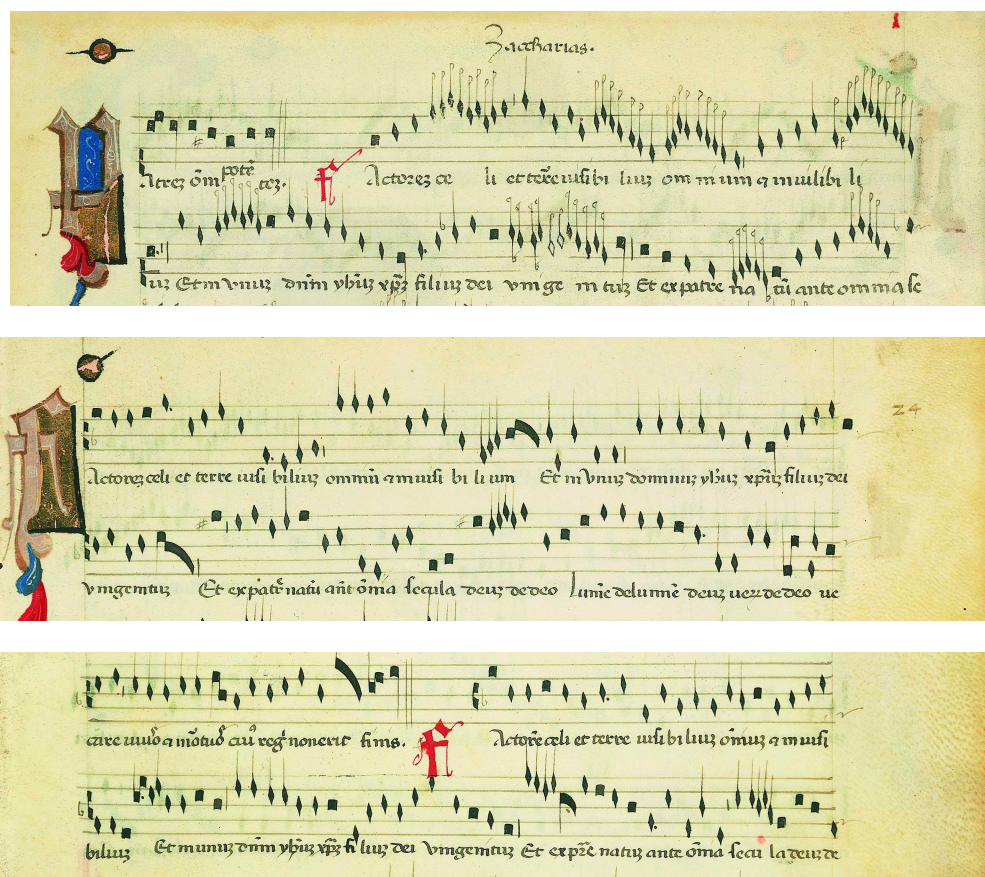 Zaccharias.
Patrez om̄ potē tez. Factorez ce li et terre uisibi liuz om̄ nium et inuisibi li
uz Et in vnuz dn̄m yhūz xp̄z filiuz dei vnige ni tuz Et ex patre na tū ante omnia se
24
Factorez celi et terre uisi biliuz omniū et inuisi bi li um Et in vnuz dominuz yhūz xp̄uz filiuz dei
vnigenituz Et ex patrē natū ant ōnia secula deuz de deo Lumē de lumine deuz ueꝝ de deo ue
care uiuo et mōtuo cuiꝰ regͥ non erit finis. Factorē celi et terre uisi bi liuz om̄iuz et inuisi
biliuz Et in unuz dn̄m yhūz xp̄z fi liuz dei Vnigenituz Et ex pr̄e natuz ante ōnia secu la deuz de